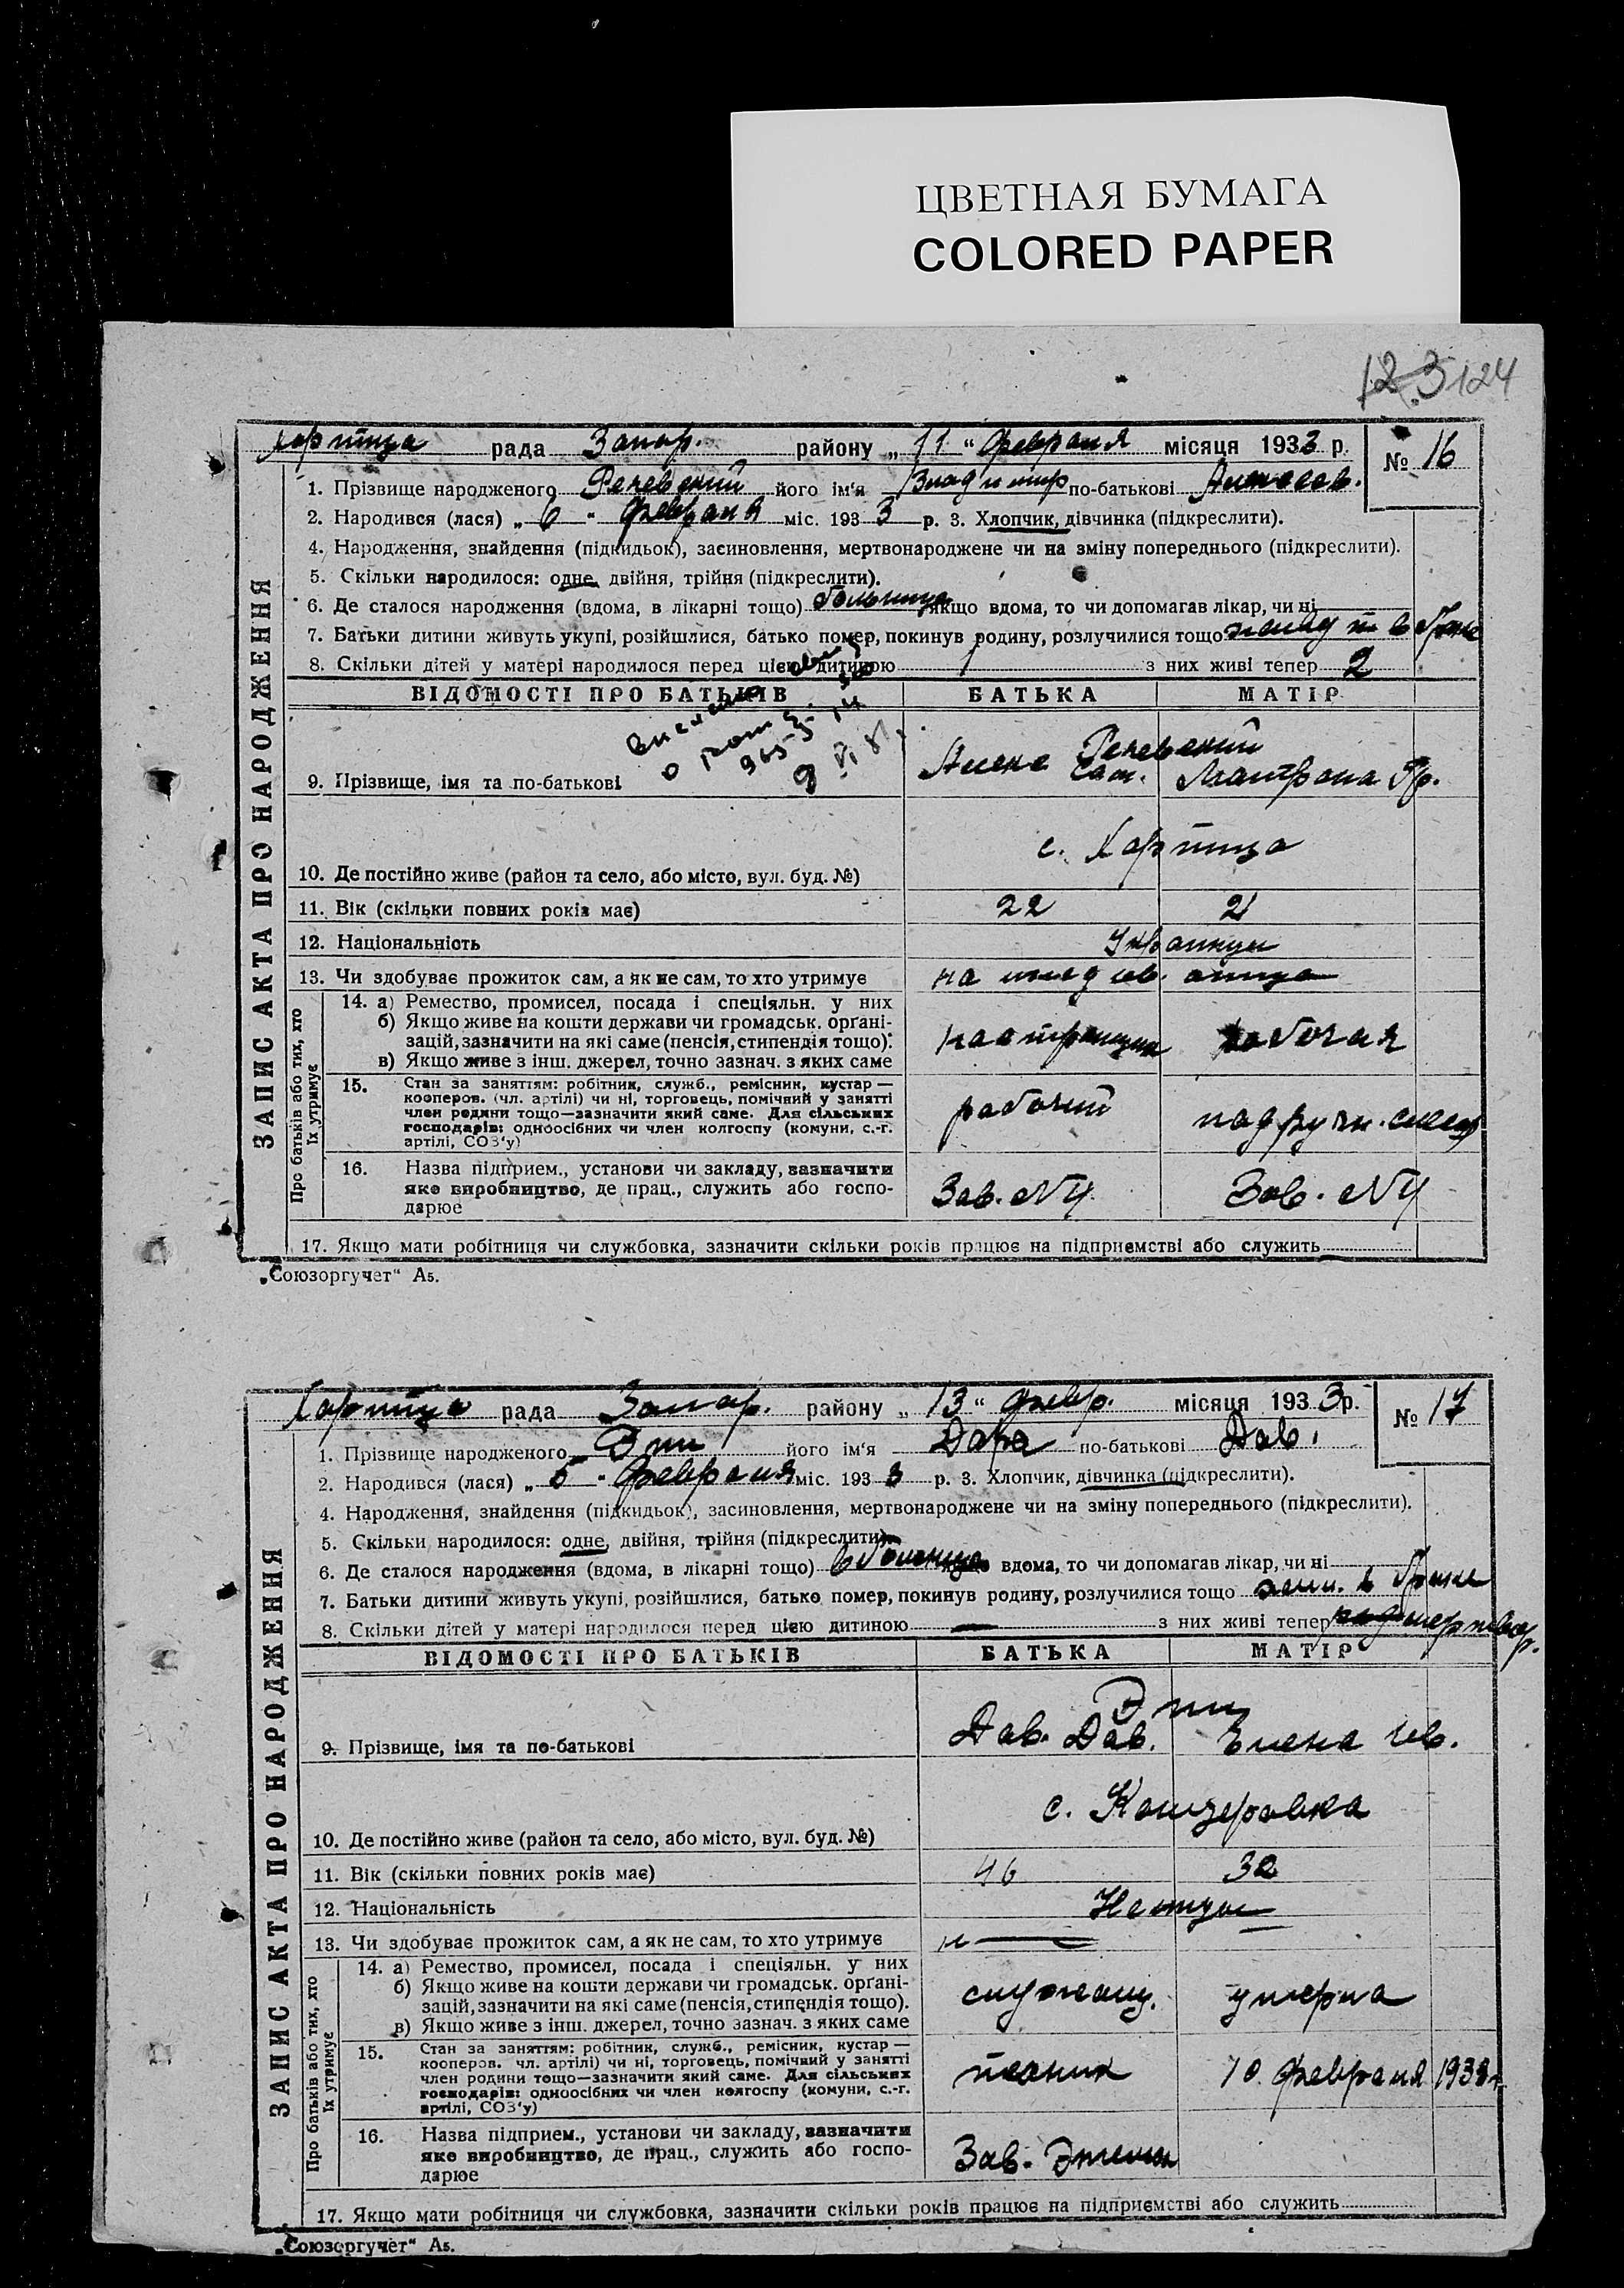 ЦВЕТНАЯ БУМАГА
COLORED PAPER
123 124
Хортица рада Запор. району „ 11 “ февраля місяця 1933 р. № 16
1. Прізвище народженого його ім'я Владимир по-батькові
2. Народився (лася) „ 6 " февраля міс. 193 3 р. 3. Хлопчик, дівчинка (підкреслити).
4. Народження, знайдення (підкидьок), засиновлення, мертвонароджене чи на зміну попереднього (підкреслити).
5. Скільки народилося: одне, двійня, трійня (підкреслити).
6. Де сталося народження (вдома, в лікарні тощо) больница якщо вдома, то чи допомагав лікар, чи ні
7. Батьки дитини живуть укупі, розійшлися, батько помер, покинув родину, розлучилися тощо в браке
8. Скільки дітей у матері народилося перед цією дитиною 1 з них живі тепер 2
ВІДОМОСТІ ПРО БАТЬКІВ БАТЬКА МАТІР
9. Прізвище, імя та по-батькові Матрона
с. Хортица
10. Де постійно живе (район та село, або місто, вул. буд. №)
11. Вік (скільки повних років має) 22 21
12. Національність Украинцы
13. Чи здобуває прожиток сам, а як не сам, то хто утримує на отца
14. а) Ремество, промисел, посада і спеціяльн. у них
б) Якщо живе на кошти держави чи громадськ. орґані-
зацій, зазначити на які саме (пенсія, стипендія тощо).
в) Якщо живе з інш. джерел, точно зазнач. з яких саме
рабочая
15. Стан за заняттям: робітник, служб., ремісник, кустар —
кооперов. (чл. артілі) чи ні, торговець, помічний у занятті
член родини тощо—зазначити який саме. Для сільських
господарів: одноосібних чи член колгоспу (комуни, с.-г.
артілі, СОЗ'у)
рабочий
16. Назва підприєм., установи чи закладу, зазначити
яке виробництво, де прац., служить або госпо-
дарює
Зав. №4 Зав. №4
17. Якщо мати робітниця чи службовка, зазначити скільки років працює на підприємстві або служить
ЗАПИС АКТА ПРО НАРОДЖЕННЯ
Про батьків або тих, хто їх утримує
„Союзоргучет“ А5.
Хортица рада Запор. району „ 13 “ февр. місяця 193 3 р. № 17
1. Прізвище народженого Эпп його ім'я Дора по-батькові Дав.
2. Народився (лася) „ 5 " февраля міс. 193 3 р. 3. Хлопчик, дівчинка (підкреслити).
4. Народження, знайдення (підкидьок), засиновлення, мертвонароджене чи на зміну попереднього (підкреслити).
5. Скільки народилося: одне, двійня, трійня (підкреслити).
6. Де сталося народження (вдома, в лікарні тощо) в больнице вдома, то чи допомагав лікар, чи ні
7. Батьки дитини живуть укупі, розійшлися, батько помер, покинув родину, розлучилися тощо в браке
8. Скільки дітей у матері народилося перед цією дитиною — з них живі тепер
ВІДОМОСТІ ПРО БАТЬКІВ БАТЬКА МАТІР
Эпп
9. Прізвище, імя та по-батькові Дав. Дав. Елена
с. Канцеровка
10. Де постійно живе (район та село, або місто, вул. буд. №)
11. Вік (скільки повних років має) 46 32
12. Національність Немцы
13. Чи здобуває прожиток сам, а як не сам, то хто утримує
14. а) Ремество, промисел, посада і спеціяльн. у них
б) Якщо живе на кошти держави чи громадськ. орґані-
зацій, зазначити на які саме (пенсія, стипендія тощо).
в) Якщо живе з інш. джерел, точно зазнач. з яких саме
служащ. умерла
15. Стан за заняттям: робітник, служб., ремісник, кустар —
кооперов. чл. артілі) чи ні, торговець, помічний у занятті
член родини тощо—зазначити який саме. Для сільських
господарів: одноосібних чи член колгоспу (комуни, с.-г.
артілі, СОЗ'у)
10 февраля 1933 г.
16. Назва підприєм., установи чи закладу, зазначити
яке виробництво, де прац., служить або госпо-
дарює
Зав.
17. Якщо мати робітниця чи службовка, зазначити скільки років працює на підприємстві або служить
ЗАПИС АКТА ПРО НАРОДЖЕННЯ
Про батьків або тих, хто їх утримує
„Союзоргучет“ А5.